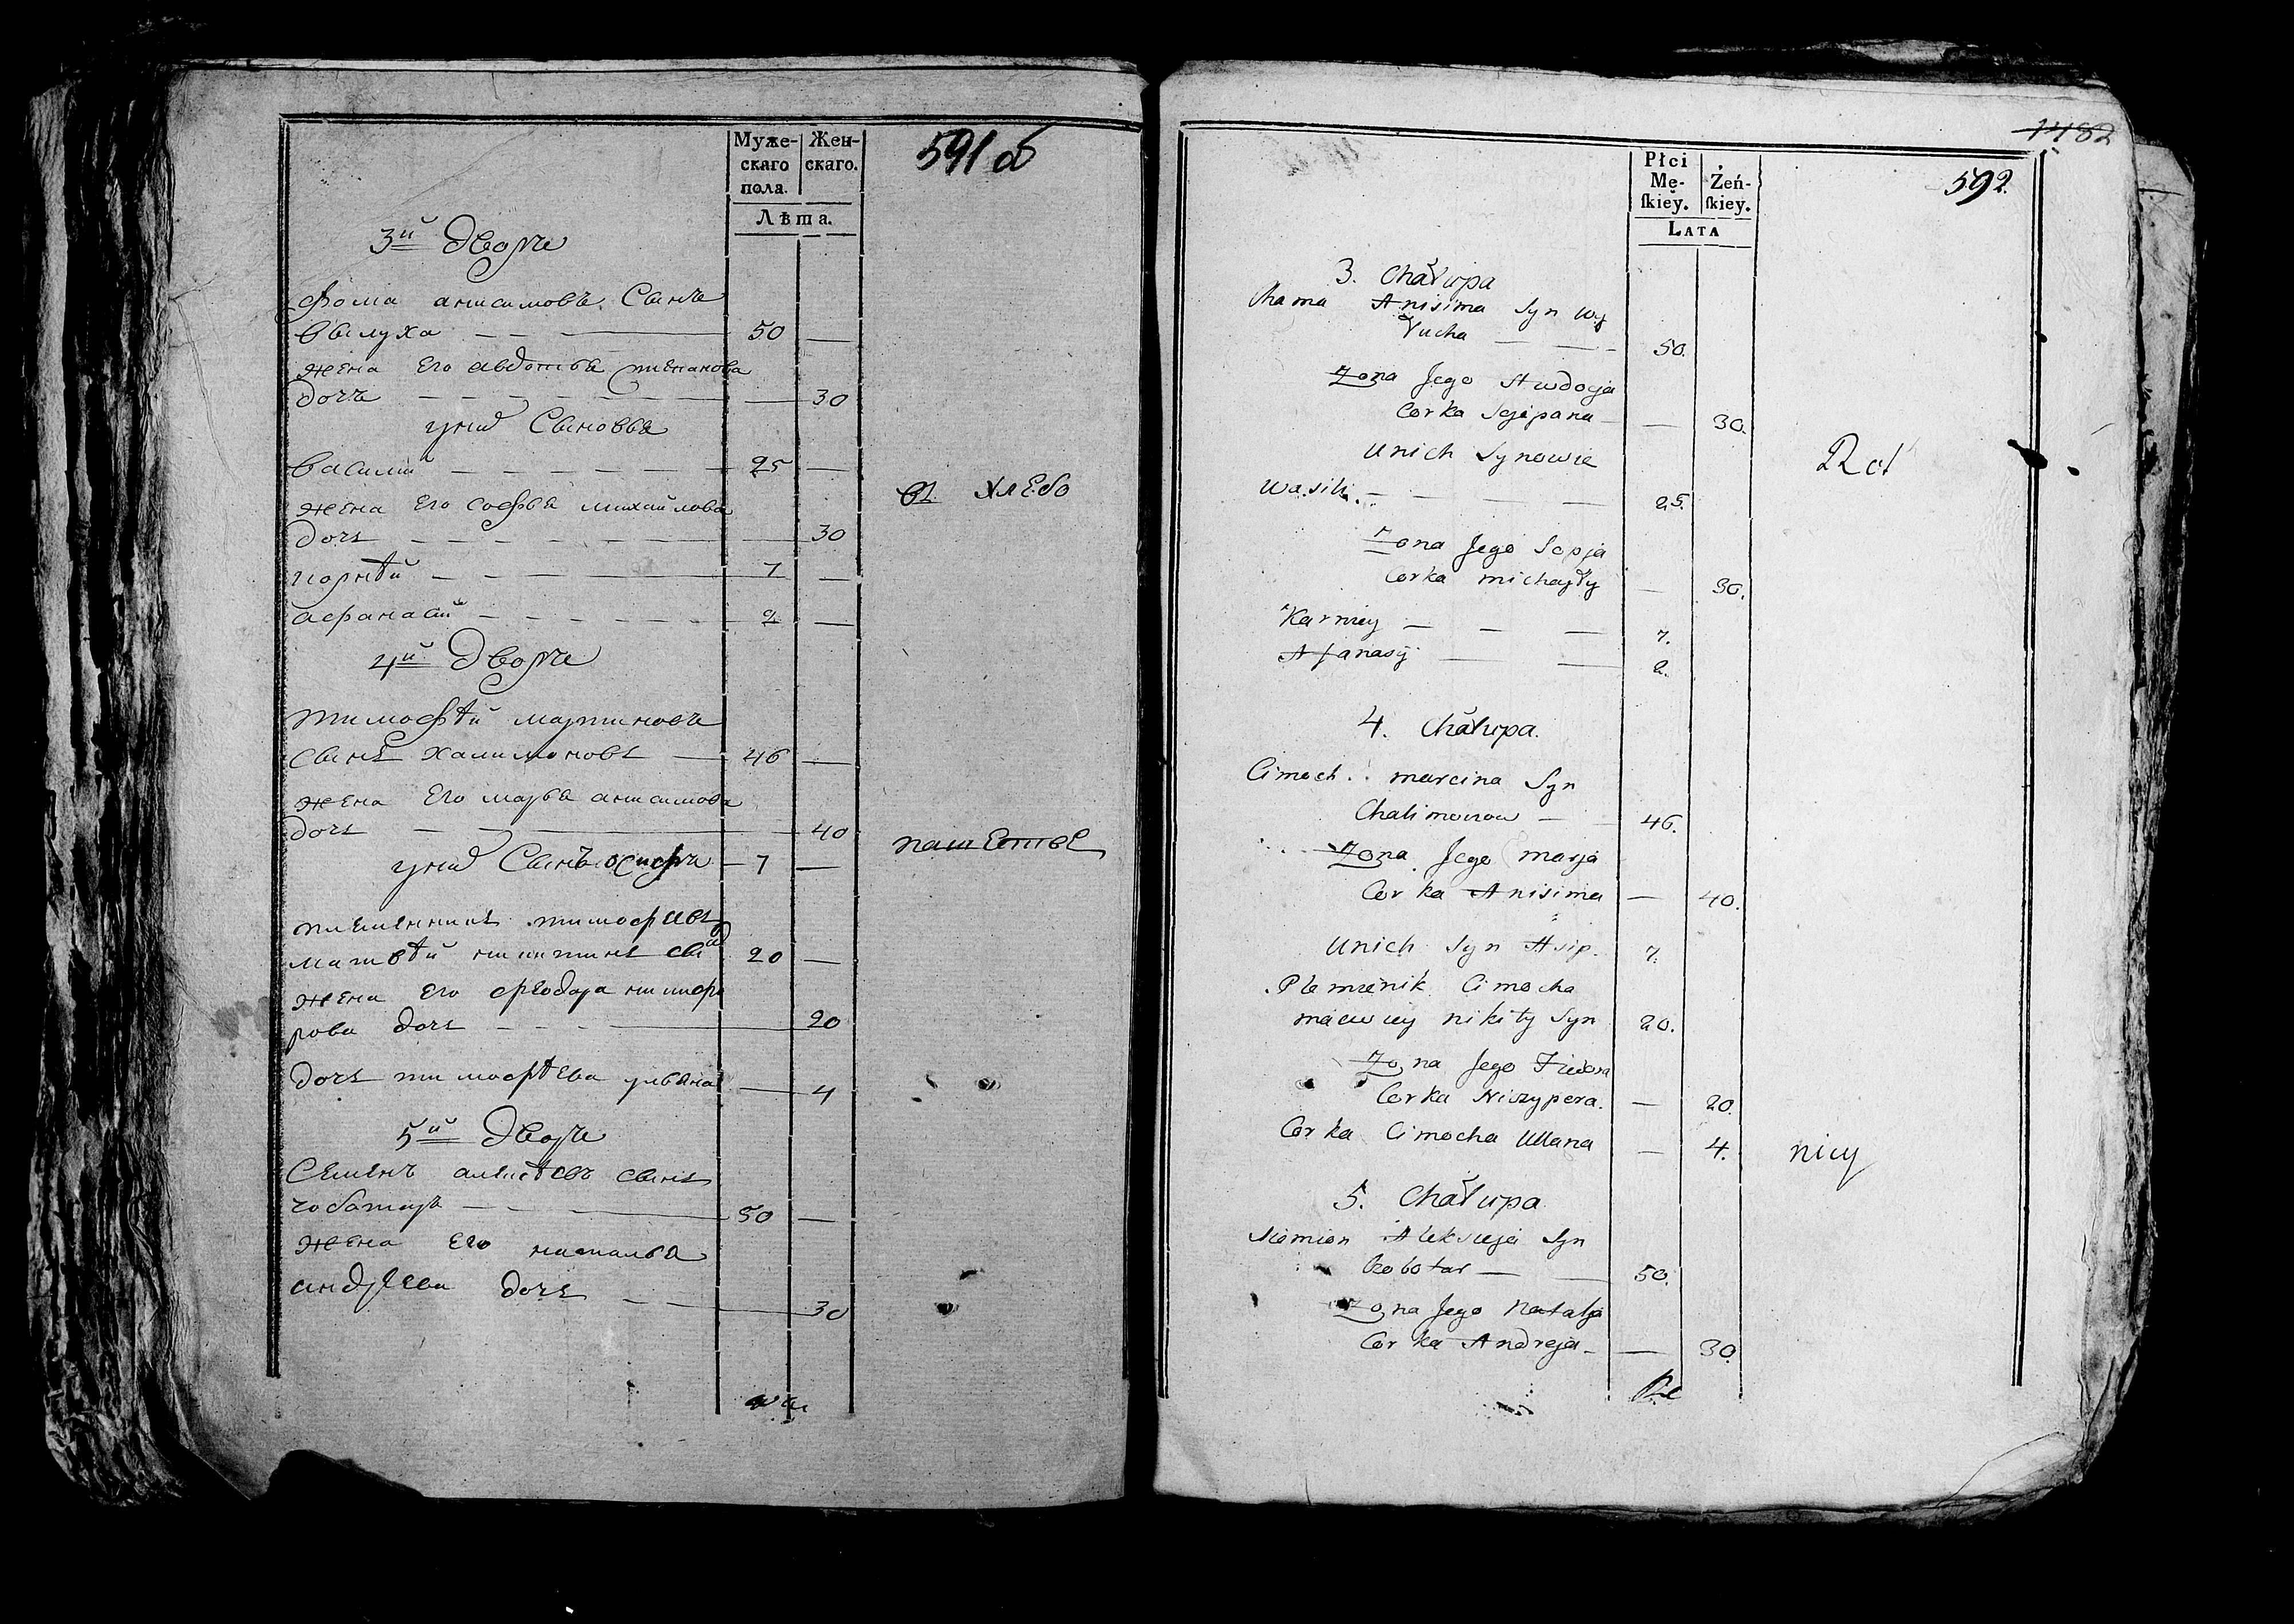 Муже-
скаго
пола.
Жен-
скаго.
Лѣта.
591 об
3й дворъ
Фома анисимовъ Сынъ
Вылуха 50
жена Его авдотья стипанова
дочъ 30
у них Сыновья
Василий 25
жена Его софья михайлова
дочь 30
корнѣй 7
афанасий 2
въ хлебо
4й дворъ
тимофѣй мартиновъ
сынъ халимоновъ 46
жена Его марья анисимова
дочь 40
у них Сынъ осифъ 7
племянникъ тимофѣевъ
матвѣй никитинъ сын 20
жена Его феодора никифо
рова дочь 20
дочь тимофѣева ульяна 4
пашетные
5й дворъ
Семенъ алексѣевъ сынъ
чоботаръ 50
жена Его наталья
андреева дочь 30
1482
592.
Płci
Mę-
ſkiey.
Żeń-
ſkiey.
LATA
3. Chałupa
Chama Anisima Syn Wy
łucha 50.
Zona Jego Awdocja
Corka Scipana 30.
Unich Synowie
Wasili 25.
Zona Jego Sopja
Corka michayły 30.
Karniey 7.
Afanasij 2.
Rol
4. Chałupa.
Cimoch marcina Syn
Chalimonow 46.
Zona Jego marja
Corka Anisima 40.
Unich Syn Asip. 7.
Plemienik Cimocha
maciwiey nikity Syn 20.
Zona Jego Fiedora
Corka Niczypera. 20.
Corka Cimocha Ullana 4.
nicy
5. Chałupa
Siemion Aleksieja Syn
Czobotar 50.
Zona Jego Natalja
Corka Andreja 30.